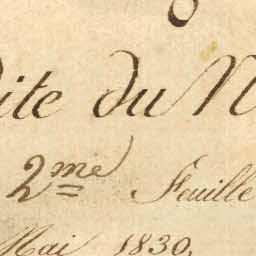 dite du N
2me Feuille
Mai 1830.